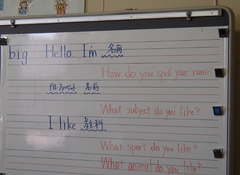 big Hello. I'm 名前
How do you spell your name?
アルファベット 名前
What subject do you like?
I like 教科
What sport do you like?
What animal do you like?